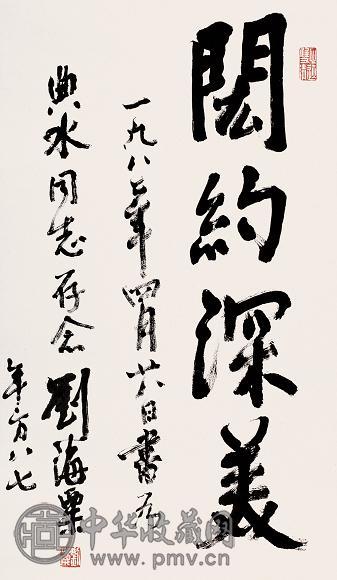 閎約深美
一九八二年四月廿日書為
典水同志存念 劉海粟
年方八七
中华收藏网
www.pmv.cn